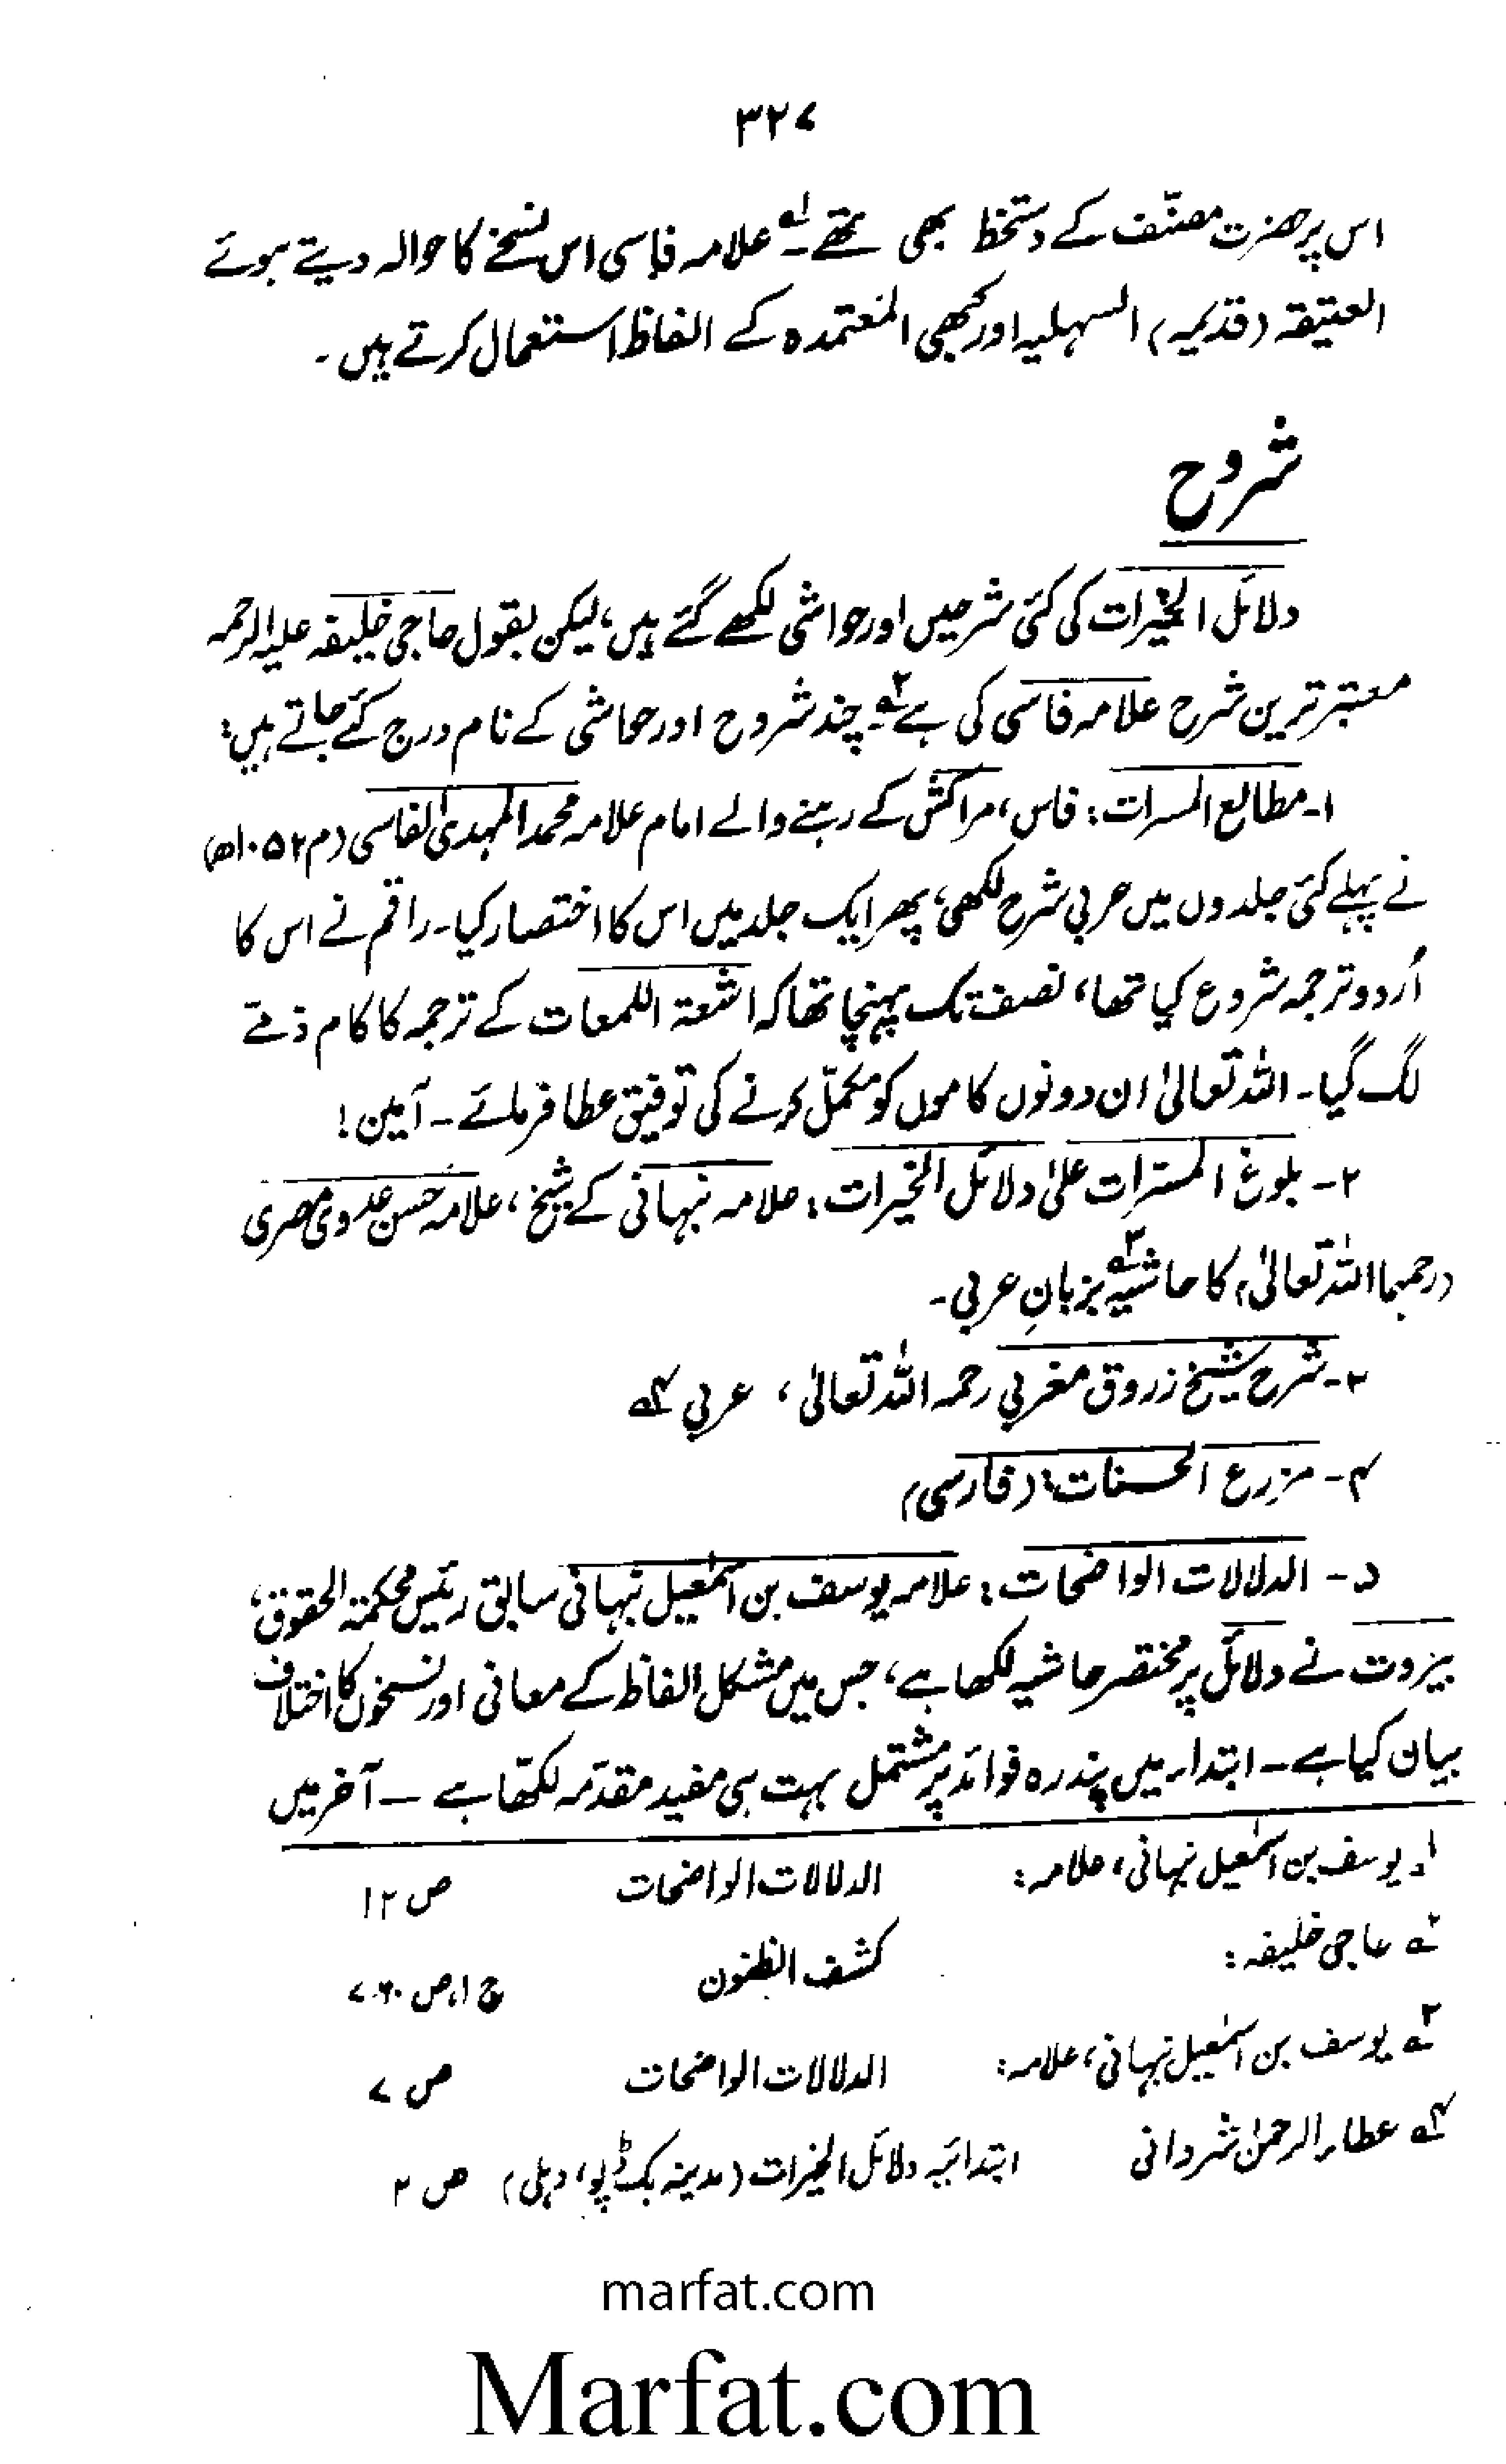 ۳۲۷
اس پر حضرت مصنّف کے دستخط بھی تھے۔ لہ علامہ فاسی اس نسخے کا حوالہ دیتے ہوئے
العتیقہ (قدیمہ) السہلیہ اور کبھی المعتمدہ کے الفاظ استعمال کرتے ہیں۔
شروح
دلائل الخیرات کی کئی شرحیں اور حواشی لکھے گئے ہیں، لیکن بقول حاجی خلیفہ علیہ الرحمہ
معتبر ترین شرح علامہ فاسی کی ہے ۲ہ چند شروح اور حواشی کے نام درج کئے جاتے ہیں:
۱۔ مطالع المسرات: فاس، مراکش کے رہنے والے امام علامہ محمد المہدی الفاسی (م ۱۰۵۲ھ)
نے پہلے کئی جلدوں میں عربی شرح لکھی، پھر ایک جلد میں اس کا اختصار کیا۔ راقم نے اس کا
اُردو ترجمہ شروع کیا تھا، نصف تک پہنچا تھا کہ اشعۃ اللمعات کے ترجمہ کا کام ذمّے
لگ گیا۔ اللہ تعالیٰ ان دونوں کاموں کو مکمّل کرنے کی توفیق عطا فرمائے۔ آمین!
۲۔ بلوغ المسرّات علیٰ دلائل الخیرات: علامہ نبہانی کے شیخ، علامہ حسن عدوی مصری
(رحمہما اللہ تعالیٰ) کا حاشیہ ۳ہ بزبانِ عربی۔
۳۔ شرح شیخ زروق مغربی رحمہ اللہ تعالیٰ، عربی ۴ہ
۴۔ مزرع الحسنات: (فارسی)
۵۔ الدلالات الواضحات: علامہ یوسف بن اسمٰعیل نبہانی سابق رئیس محکمۃ الحقوق،
بیروت نے دلائل پر مختصر حاشیہ لکھا ہے، جس میں مشکل الفاظ کے معانی اور نسخوں کا اختلاف
بیان کیا ہے۔ ابتداء میں پندرہ فوائد پر مشتمل بہت ہی مفید مقدّمہ لکھا ہے — آخر میں
۱ہ یوسف بن اسمٰعیل نبہانی، علامہ: الدلالات الواضحات ص ۱۲
۲ہ حاجی خلیفہ: کشف الظنون ج ۱، ص ۷۶۰
۳ہ یوسف بن اسمٰعیل نبہانی، علامہ: الدلالات الواضحات ص ۷
۴ہ عطاء الرحمٰن شروانی ابتدائیہ دلائل الخیرات (مدینہ بک ڈپو، دہلی) ص ۲
marfat.com
Marfat.com